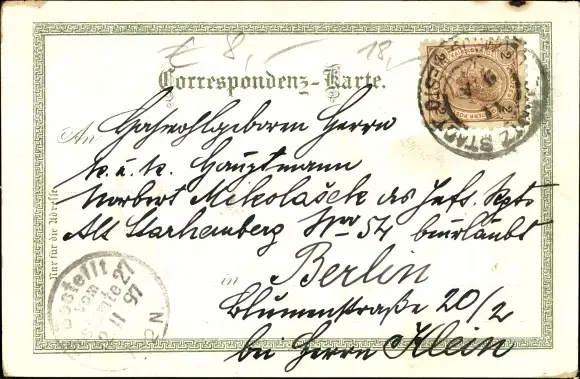 € 8,- 18,-
Correspondenz-Karte.
An Hochwohlgeboren Herrn
k. u. k. Hauptmann
Norbert Mikolašek des Inft. Rgts
Alt Starhemberg Nro 54 beurlaubt
in Berlin
Blumenstraße 20/2
bei Herrn Klein
Nur für die Adresse
Bestellt
vom
Postamte 27
11 97